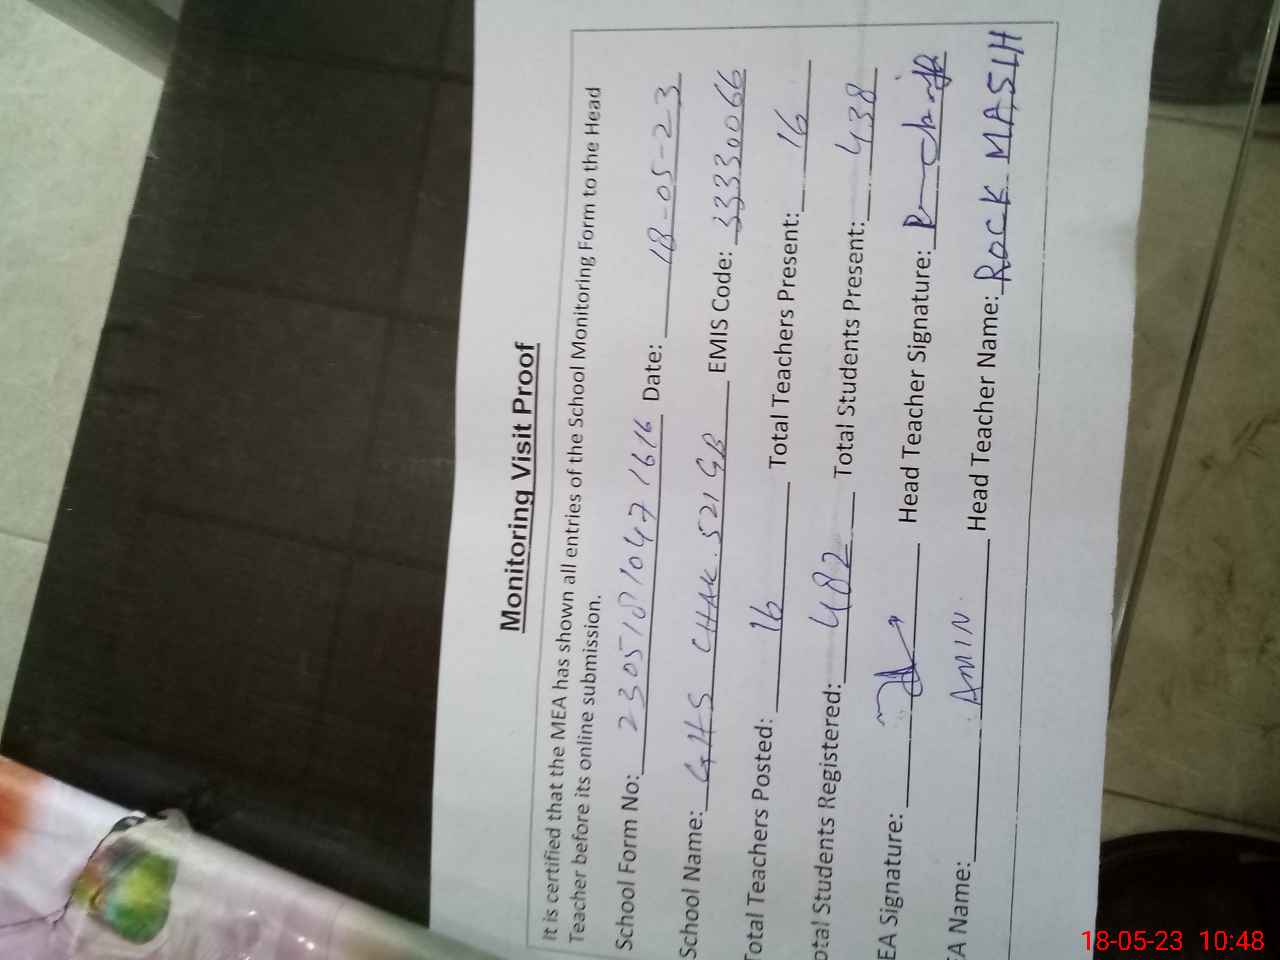 Monitoring Visit Proof
It is certified that the MEA has shown all entries of the School Monitoring Form to the Head
Teacher before its online submission.
School Form No: 23051810471616 Date: 18-05-23
School Name: GHS CHAK. 521 GB EMIS Code: 33330066
Total Teachers Posted: 16 Total Teachers Present: 16
otal Students Registered: 482 Total Students Present: 438
EA Signature: Head Teacher Signature:
EA Name: AMIN Head Teacher Name: ROCK MASIH
18-05-23 10:48